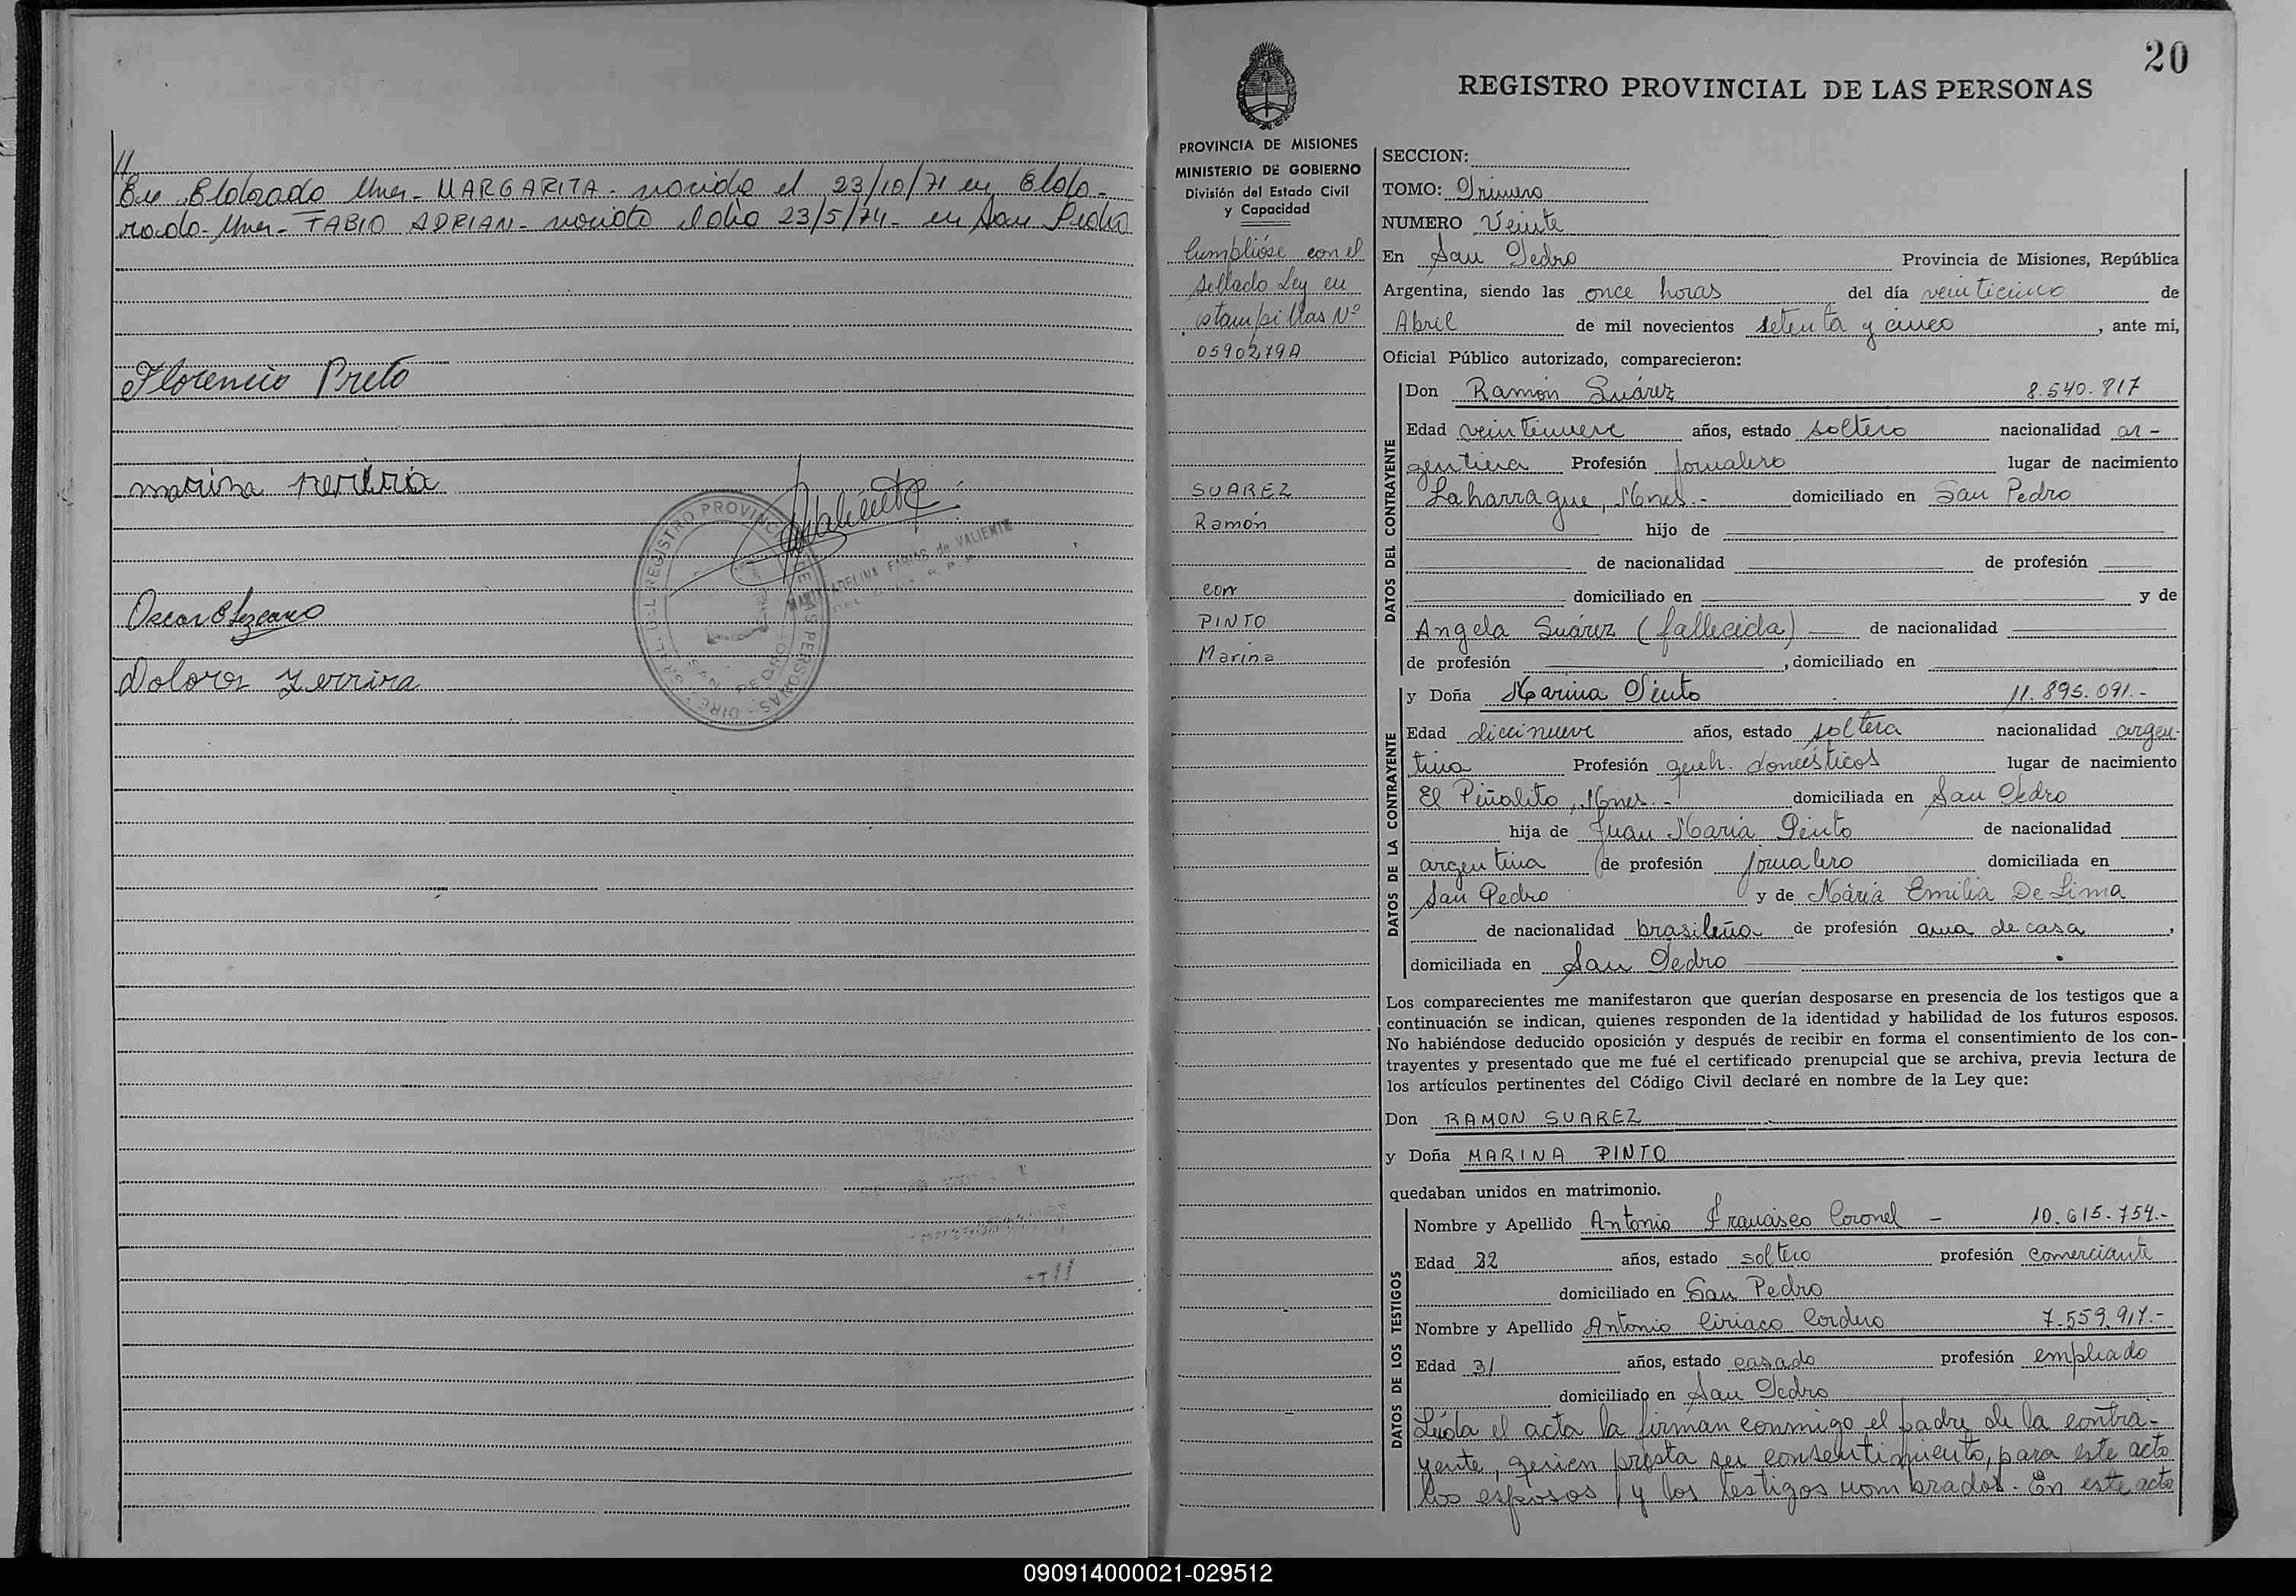 //
En Eldorado Mnes- MARGARITA- nacida el 23/10/71 en Eldo-
rado- Mnes- FABIO ADRIAN- nacido el dia 23/5/74- en San Pedro
Florencio Preto
marina
Oscar Lezcano
Dolores
REGISTRO PROVINCIAL DE LAS PERSONAS
SAN PEDRO
MARTA ADELINA FARIAS de VALIENTE
20
REGISTRO PROVINCIAL DE LAS PERSONAS
PROVINCIA DE MISIONES
MINISTERIO DE GOBIERNO
División del Estado Civil
y Capacidad
Cumplióse con el
sellado Ley en
estampillas Nº
0590279A
SUAREZ
Ramón
con
PINTO
Marina
SECCION:
TOMO: Primero
NUMERO Veinte
En San Pedro Provincia de Misiones, República
Argentina, siendo las once horas del día veinticinco de
Abril de mil novecientos setenta y cinco, ante mi,
Oficial Público autorizado, comparecieron:
DATOS DEL CONTRAYENTE
Don Ramón Suárez 8.540.817
Edad veintinueve años, estado soltero nacionalidad ar-
gentina Profesión jornalero lugar de nacimiento
Laharrague, Mnes.- domiciliado en San Pedro
hijo de
de nacionalidad de profesión
domiciliado en y de
Angela Suárez (fallecida) de nacionalidad
de profesión , domiciliado en
DATOS DE LA CONTRAYENTE
y Doña Marina Pinto 11.895.091.-
Edad diecinueve años, estado soltera nacionalidad argen-
tina Profesión queh. domésticos lugar de nacimiento
El Piñalito, Mnes.- domiciliada en San Pedro
hija de Juan María Pinto de nacionalidad
argentina de profesión jornalero domiciliada en
San Pedro y de María Emilia De Lima
de nacionalidad brasileña de profesión ama de casa,
domiciliada en San Pedro
Los comparecientes me manifestaron que querían desposarse en presencia de los testigos que a
continuación se indican, quienes responden de la identidad y habilidad de los futuros esposos.
No habiéndose deducido oposición y después de recibir en forma el consentimiento de los con-
trayentes y presentado que me fué el certificado prenupcial que se archiva, previa lectura de
los artículos pertinentes del Código Civil declaré en nombre de la Ley que:
Don RAMON SUAREZ
y Doña MARINA PINTO
quedaban unidos en matrimonio.
DATOS DE LOS TESTIGOS
Nombre y Apellido Antonio Francisco Coronel - 10.615.754.-
Edad 22 años, estado soltero profesión comerciante
domiciliado en San Pedro
Nombre y Apellido Antonio Ciriaco Cordero 7.559.917.-
Edad 31 años, estado casado profesión empleado
domiciliado en San Pedro
Leída el acta la firman conmigo el padre de la contra-
yente, quien presta su consentimiento, para este acto
los esposos y los testigos nombrados. En este acto
090914000021-029512